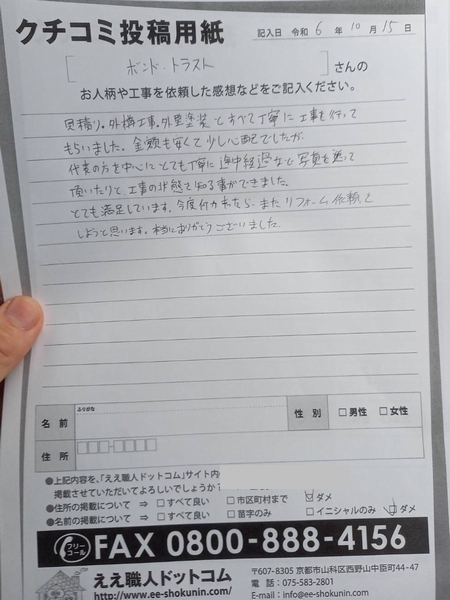 クチコミ投稿用紙
記入日 令和 6 年 10 月 15 日
[ ボンド・トラスト ] さんの
お人柄や工事を依頼した感想などをご記入ください。
見積り、外構工事、外壁塗装とすべて丁寧に工事を行って
もらいました。金額も安くて少し心配でしたが、
代表の方を中心にとても丁寧に途中経過など写真を送って
頂いたりと、工事の状態を知る事ができました。
とても満足しています。今度何か有ったら、またリフォーム依頼を
しようと思います。本当にありがとうございました。
ふりがな
名前
性別 □男性 □女性
住所
●上記内容を、「ええ職人ドットコム」サイト内
掲載させていただいてよろしいでしょうか?
●住所の掲載について ⇒ □すべて良い □市区町村まで ☑ダメ
●名前の掲載について ⇒ □すべて良い □苗字のみ □イニシャルのみ ☑ダメ
フリーコール FAX 0800-888-4156
ええ職人ドットコム
http://www.ee-shokunin.com/
〒607-8305 京都市山科区西野山中臣町44-47
電話:075-583-2801
E-mail:info@ee-shokunin.com